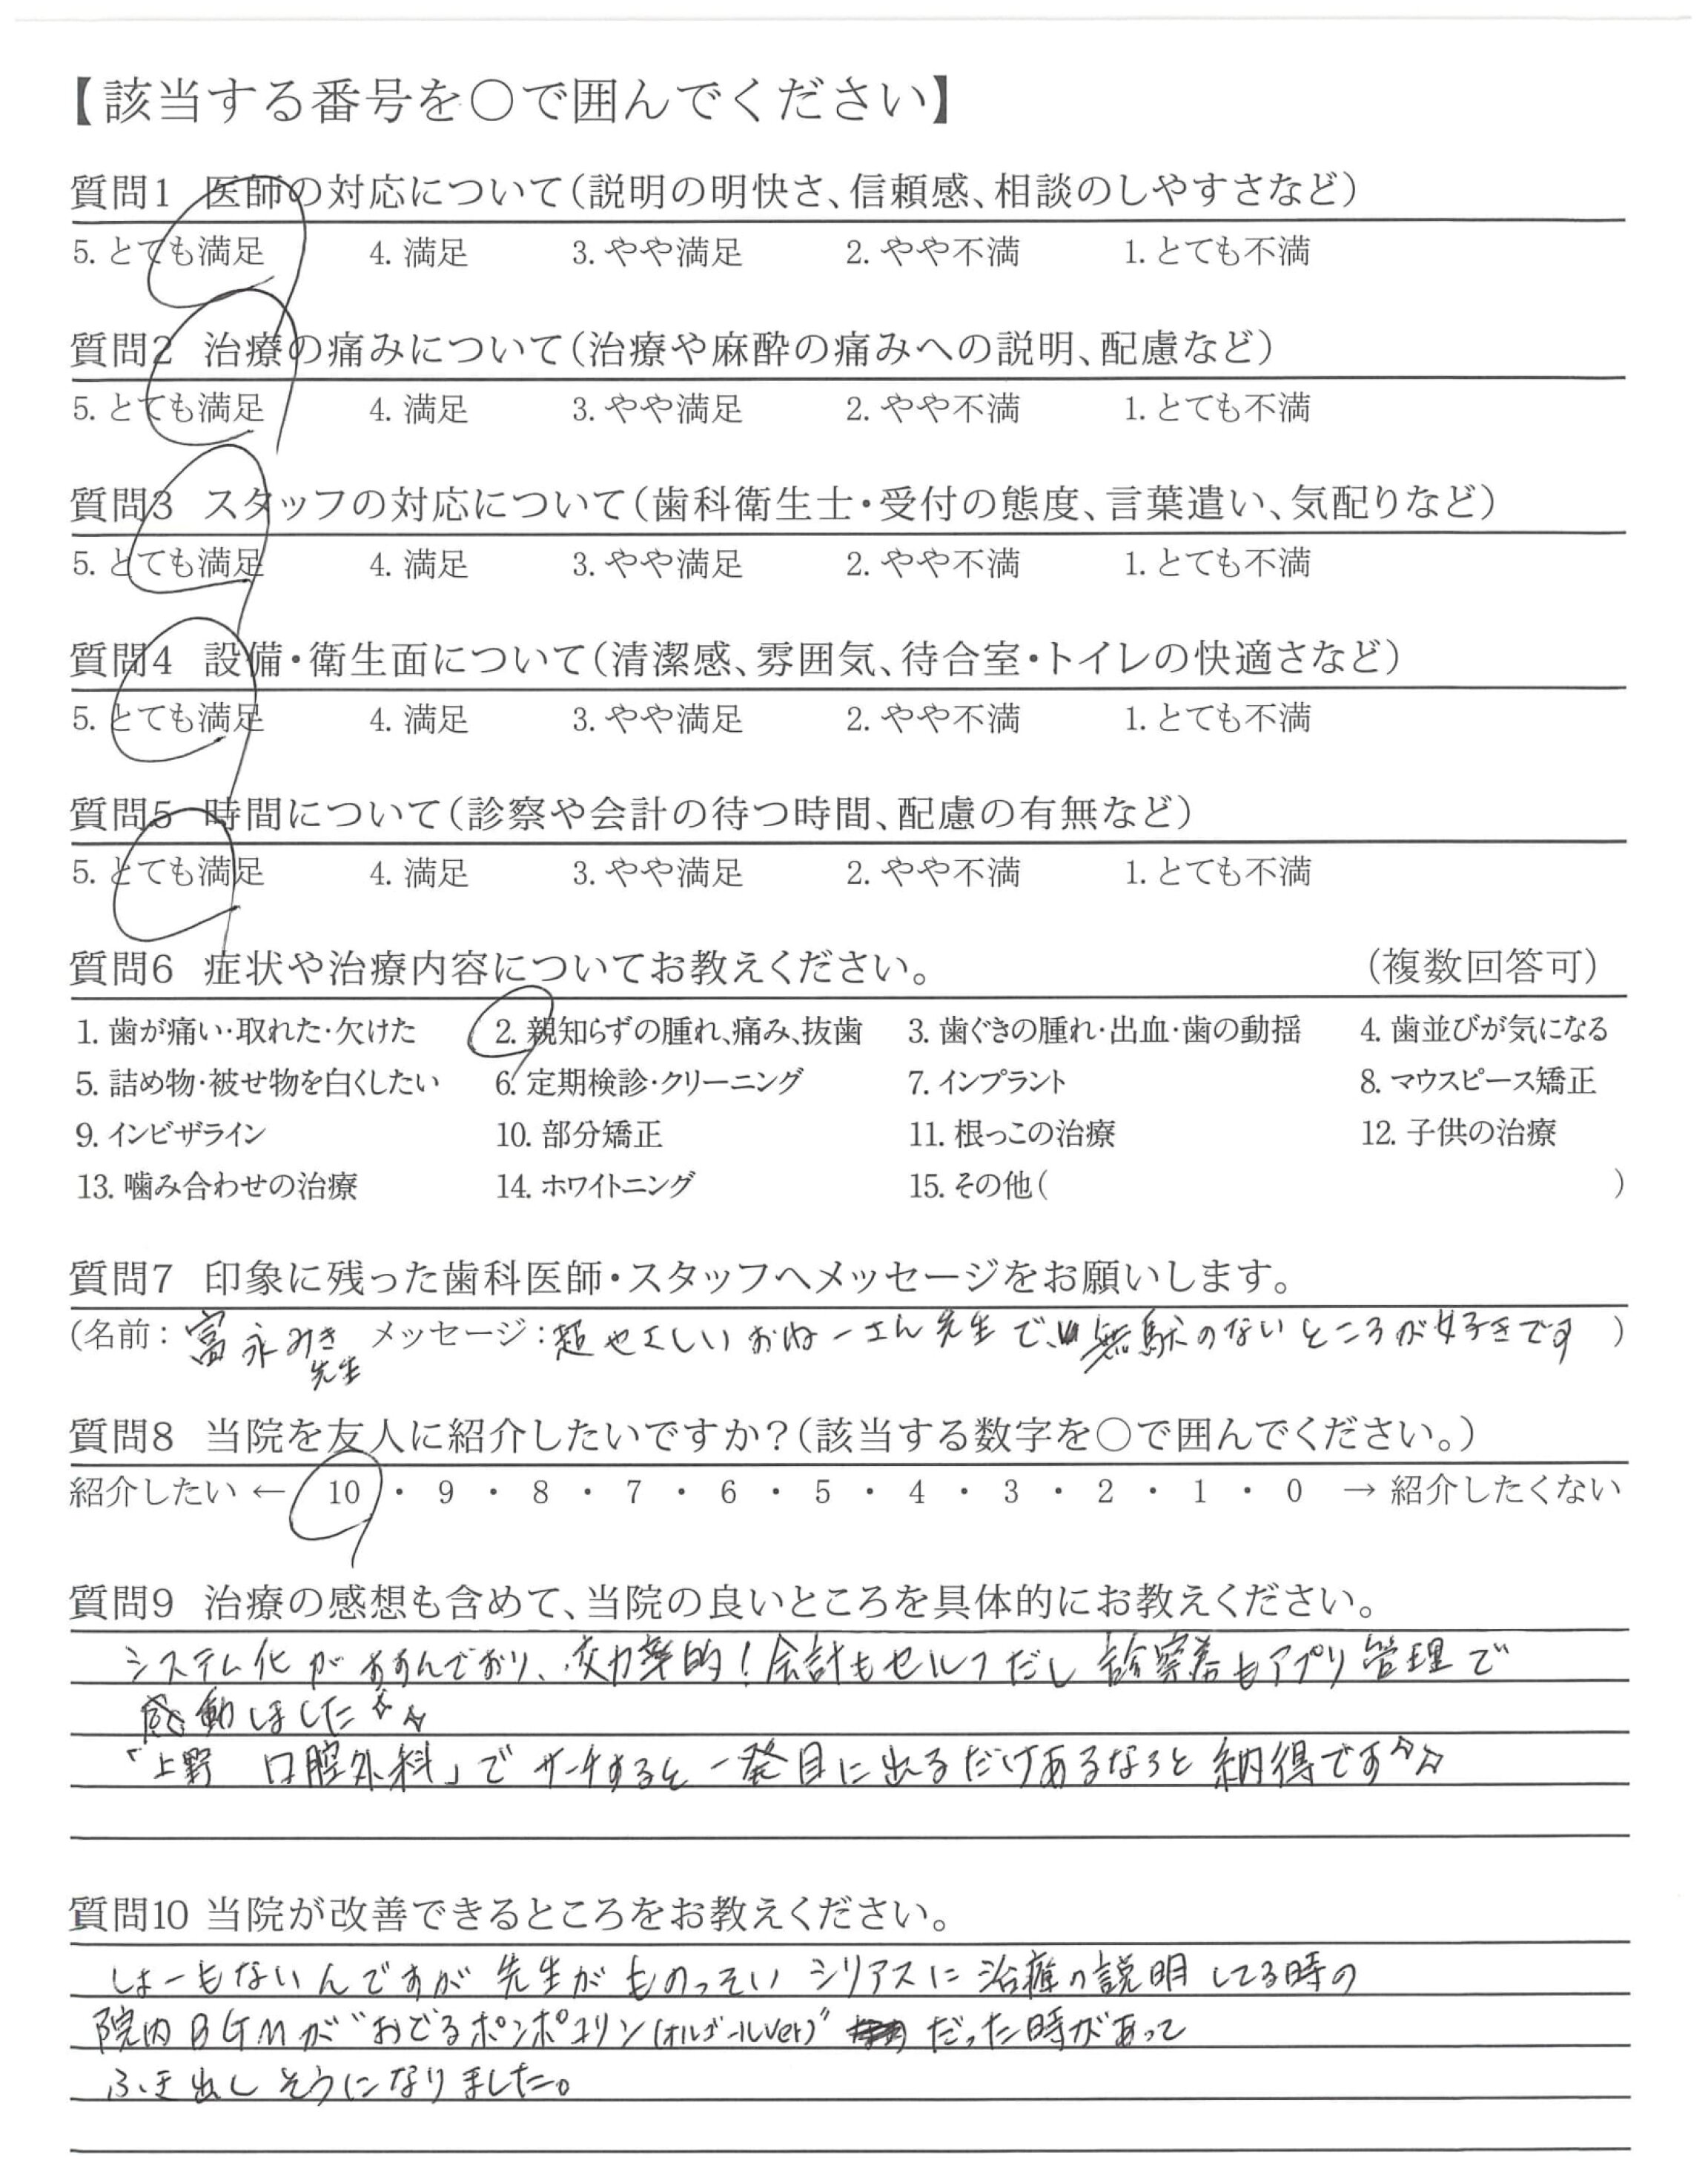 【該当する番号を○で囲んでください】
質問1 医師の対応について（説明の明快さ、信頼感、相談のしやすさなど）
5. とても満足 4. 満足 3. やや満足 2. やや不満 1. とても不満
質問2 治療の痛みについて（治療や麻酔の痛みへの説明、配慮など）
5. とても満足 4. 満足 3. やや満足 2. やや不満 1. とても不満
質問3 スタッフの対応について（歯科衛生士・受付の態度、言葉遣い、気配りなど）
5. とても満足 4. 満足 3. やや満足 2. やや不満 1. とても不満
質問4 設備・衛生面について（清潔感、雰囲気、待合室・トイレの快適さなど）
5. とても満足 4. 満足 3. やや満足 2. やや不満 1. とても不満
質問5 時間について（診察や会計の待つ時間、配慮の有無など）
5. とても満足 4. 満足 3. やや満足 2. やや不満 1. とても不満
質問6 症状や治療内容についてお教えください。 （複数回答可）
1. 歯が痛い・取れた・欠けた 2. 親知らずの腫れ、痛み、抜歯 3. 歯ぐきの腫れ・出血・歯の動揺 4. 歯並びが気になる
5. 詰め物・被せ物を白くしたい 6. 定期検診・クリーニング 7. インプラント 8. マウスピース矯正
9. インビザライン 10. 部分矯正 11. 根っこの治療 12. 子供の治療
13. 噛み合わせの治療 14. ホワイトニング 15. その他（ ）
質問7 印象に残った歯科医師・スタッフへメッセージをお願いします。
（名前：富永みき先生 メッセージ：超やさしいおねーさん先生で、無駄のないところが好きです ）
質問8 当院を友人に紹介したいですか？（該当する数字を○で囲んでください。）
紹介したい ← 10 ・ 9 ・ 8 ・ 7 ・ 6 ・ 5 ・ 4 ・ 3 ・ 2 ・ 1 ・ 0 → 紹介したくない
質問9 治療の感想も含めて、当院の良いところを具体的にお教えください。
システム化がすすんでおり、効率的！会計もセルフだし診察券もアプリ管理で
感動しました☆☆
「上野 口腔外科」でサーチすると一発目に出るだけあるなぁと納得です☆☆
質問10 当院が改善できるところをお教えください。
しょーもないんですが先生がものっそいシリアスに治療の説明してる時の
院内BGMが"おどるポンポコリン(オルゴールver)"だった時があって
ふき出しそうになりました。